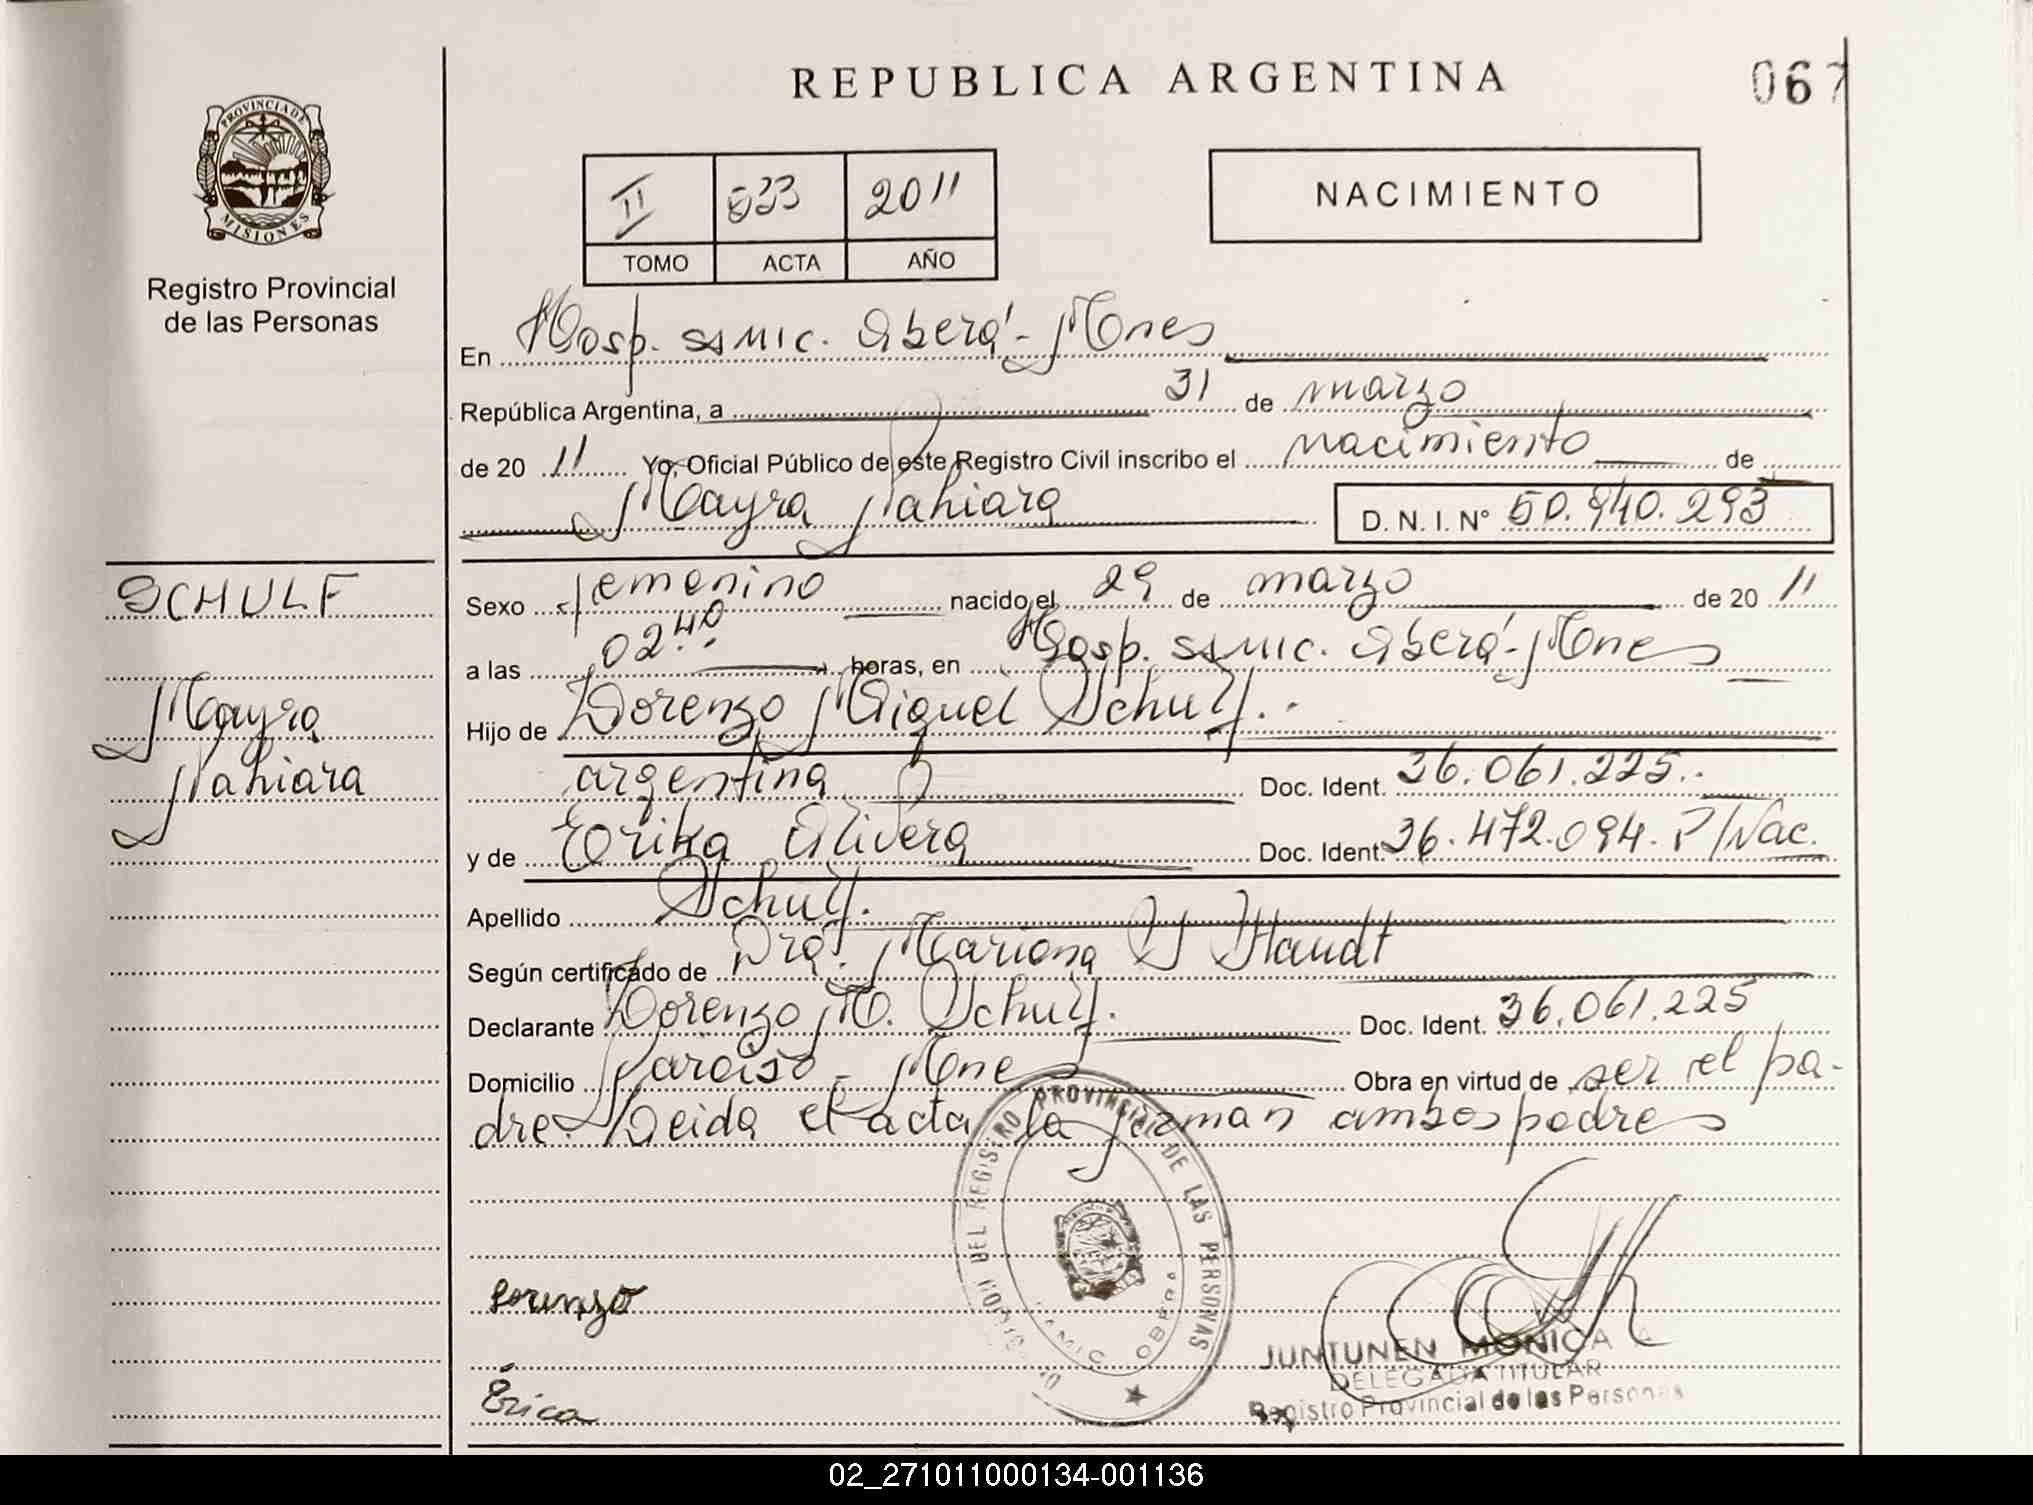 REPUBLICA ARGENTINA
067
PROVINCIA DE
MISIONES
Registro Provincial
de las Personas
II 533 2011
TOMO ACTA AÑO
NACIMIENTO
En Hosp. SAMIC. Oberá - Mnes
República Argentina, a 31 de marzo
de 20 11 Yo, Oficial Público de este Registro Civil inscribo el nacimiento de
Mayra Nahiara D. N. I. N° 50.940.293
SCHULF
Mayra
Nahiara
Sexo femenino nacido el 29 de marzo de 20 11
a las 02.40 horas, en Hosp. SAMIC. Oberá - Mnes
Hijo de Lorenzo Miguel Schulf.
argentina Doc. Ident. 36.061.225.
y de Erika Olivera Doc. Ident. 36.472.094. P/Nac.
Apellido Schulf.
Según certificado de Dra. Mariana Standt
Declarante Lorenzo M. Schulf. Doc. Ident. 36.061.225
Domicilio Paraiso - Mnes Obra en virtud de ser el pa-
dre. Leida el acta, la firman ambos padres
DEL REGISTRO PROVINCIAL DE LAS PERSONAS
OBERA
Lorenzo
Erica
JUNTUNEN MONICA
DELEGADA TITULAR
Registro Provincial de las Personas
02_271011000134-001136